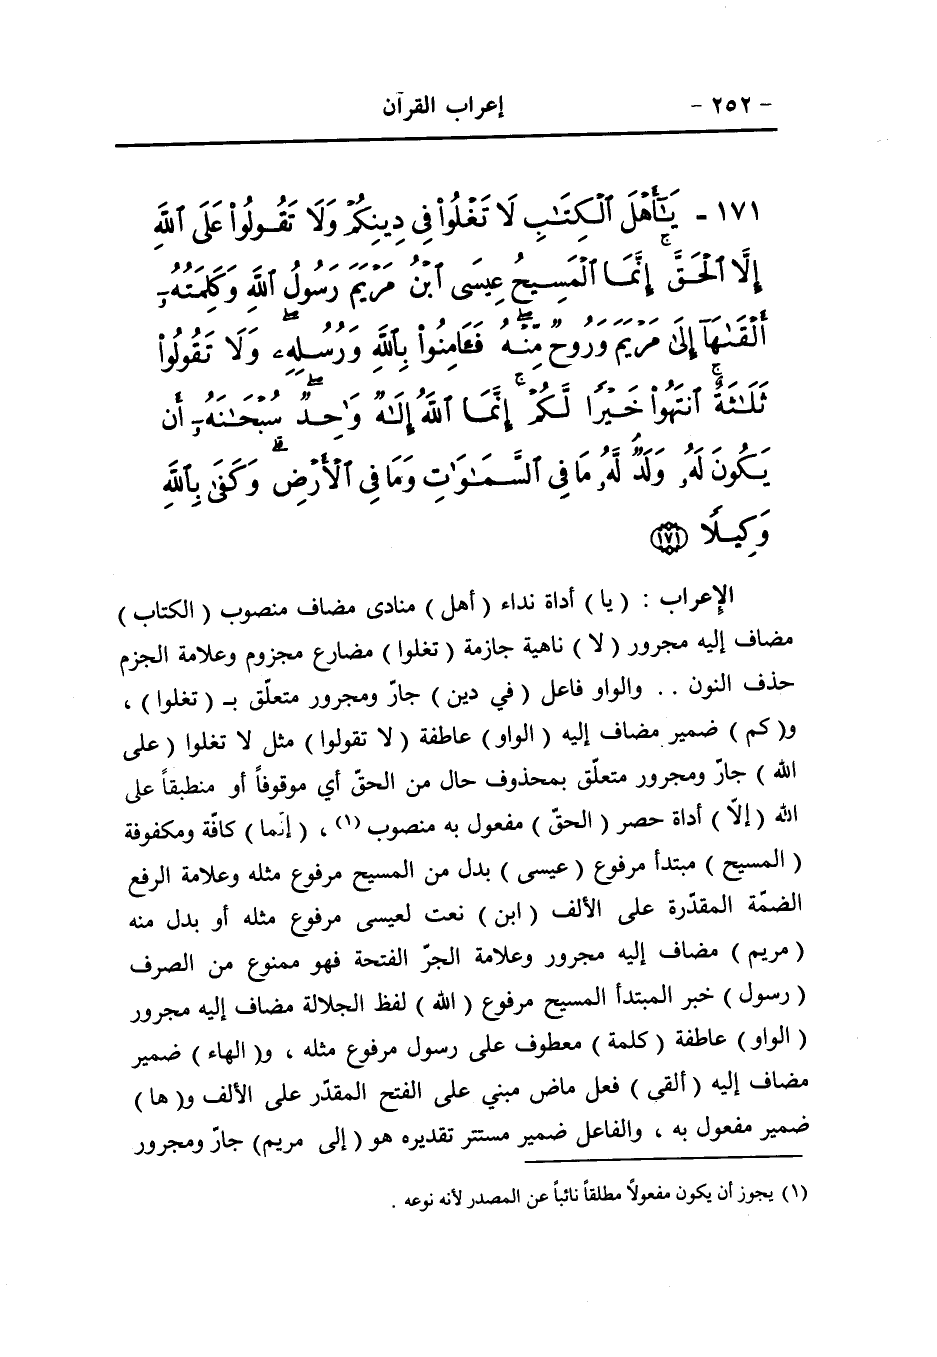 - ٢٥٢ - إعراب القرآن
١٧١ - يَٰٓأَهْلَ ٱلْكِتَٰبِ لَا تَغْلُوا۟ فِى دِينِكُمْ وَلَا تَقُولُوا۟ عَلَى ٱللَّهِ
إِلَّا ٱلْحَقَّ ۚ إِنَّمَا ٱلْمَسِيحُ عِيسَى ٱبْنُ مَرْيَمَ رَسُولُ ٱللَّهِ وَكَلِمَتُهُۥٓ
أَلْقَىٰهَآ إِلَىٰ مَرْيَمَ وَرُوحٌ مِّنْهُ ۖ فَـَٔامِنُوا۟ بِٱللَّهِ وَرُسُلِهِۦ ۖ وَلَا تَقُولُوا۟
ثَلَٰثَةٌ ۚ ٱنتَهُوا۟ خَيْرًا لَّكُمْ ۚ إِنَّمَا ٱللَّهُ إِلَٰهٌ وَٰحِدٌ ۖ سُبْحَٰنَهُۥٓ أَن
يَكُونَ لَهُۥ وَلَدٌ ۘ لَّهُۥ مَا فِى ٱلسَّمَٰوَٰتِ وَمَا فِى ٱلْأَرْضِ ۗ وَكَفَىٰ بِٱللَّهِ
وَكِيلًا ﴿١٧١﴾
الإعراب : ( يا ) أداة نداء ( أهل ) منادى مضاف منصوب ( الكتاب )
مضاف إليه مجرور ( لا ) ناهية جازمة ( تغلوا ) مضارع مجزوم وعلامة الجزم
حذف النون .. والواو فاعل ( في دين ) جارّ ومجرور متعلّق بـ ( تغلوا ) ،
و( كم ) ضمير مضاف إليه ( الواو ) عاطفة ( لا تقولوا ) مثل لا تغلوا ( على
الله ) جارّ ومجرور متعلّق بمحذوف حال من الحقّ أي موقوفاً أو منطبقاً على
الله ( إلاّ ) أداة حصر ( الحقّ ) مفعول به منصوب (١) ، ( إنّما ) كافّة ومكفوفة
( المسيح ) مبتدأ مرفوع ( عيسى ) بدل من المسيح مرفوع مثله وعلامة الرفع
الضمّة المقدّرة على الألف ( ابن ) نعت لعيسى مرفوع مثله أو بدل منه
( مريم ) مضاف إليه مجرور وعلامة الجرّ الفتحة فهو ممنوع من الصرف
( رسول ) خبر المبتدأ المسيح مرفوع ( الله ) لفظ الجلالة مضاف إليه مجرور
( الواو ) عاطفة ( كلمة ) معطوف على رسول مرفوع مثله ، و( الهاء ) ضمير
مضاف إليه ( ألقى ) فعل ماض مبني على الفتح المقدّر على الألف و( ها )
ضمير مفعول به ، والفاعل ضمير مستتر تقديره هو ( إلى مريم) جارّ ومجرور
(١) يجوز أن يكون مفعولاً مطلقاً نائباً عن المصدر لأنه نوعه .